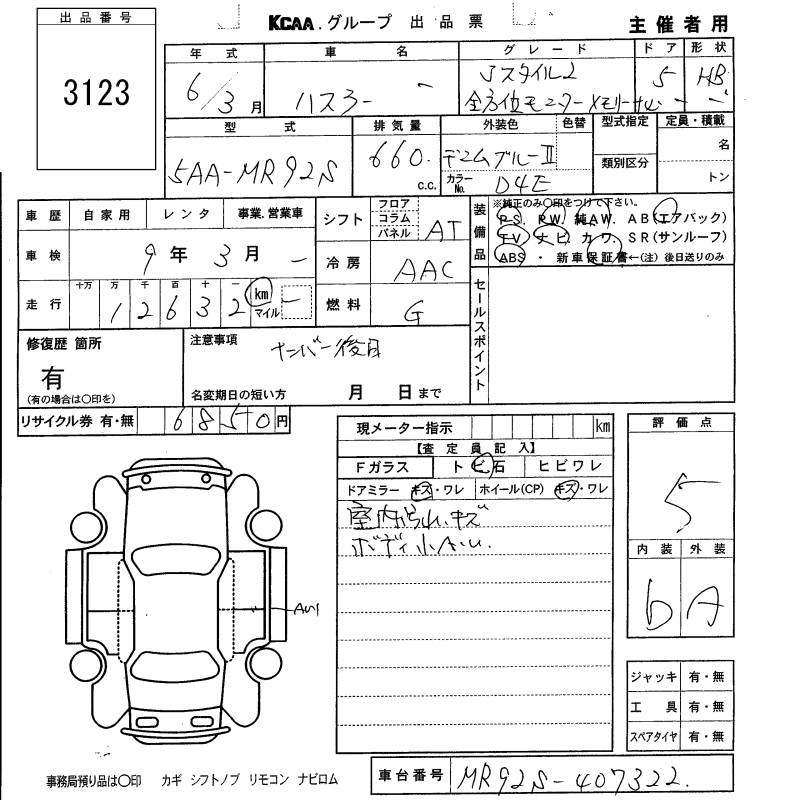 出品番号
3123
KCAA.グループ 出品票
主催者用
年式 車名 グレード ドア 形状
6/3月 ハスラー Jスタイル2 5 HB
全方位モニターメモリーナビ
型式 排気量 外装色 色替 型式指定 定員・積載
5AA-MR92S 660. c.c. デニムブルーⅡ 類別区分 名
カラーNo. D4E トン
車歴 自家用 レンタ 事業.営業車
車検 9年 3月
走行 十万 万 千 百 十 一
12632 km マイル
シフト フロア コラム パネル AT
冷房 AAC
燃料 G
装備品 ※純正のみ〇印をつけて下さい。
P.S. P.W. 純A.W. A B (エアバック)
TV ナビ カワ. S R (サンルーフ)
ABS ・ 新車保証書←(注) 後日送りのみ
セールスポイント
修復歴 箇所
有
(有の場合は〇印を)
注意事項 ナンバー後日
名変期日の短い方 月 日まで
リサイクル券 有・無 6850円
現メーター指示 km
【査定員記入】
Fガラス トビ石 ヒビワレ
ドアミラー キズ・ワレ ホイール(CP) キズ・ワレ
室内汚れ、キズ
ボディ小A・U.
AU1
評価点
5
内装 外装
b A
ジャッキ 有・無
工具 有・無
スペアタイヤ 有・無
事務局預り品は〇印 カギ シフトノブ リモコン ナビロム
車台番号 MR92S-407322.